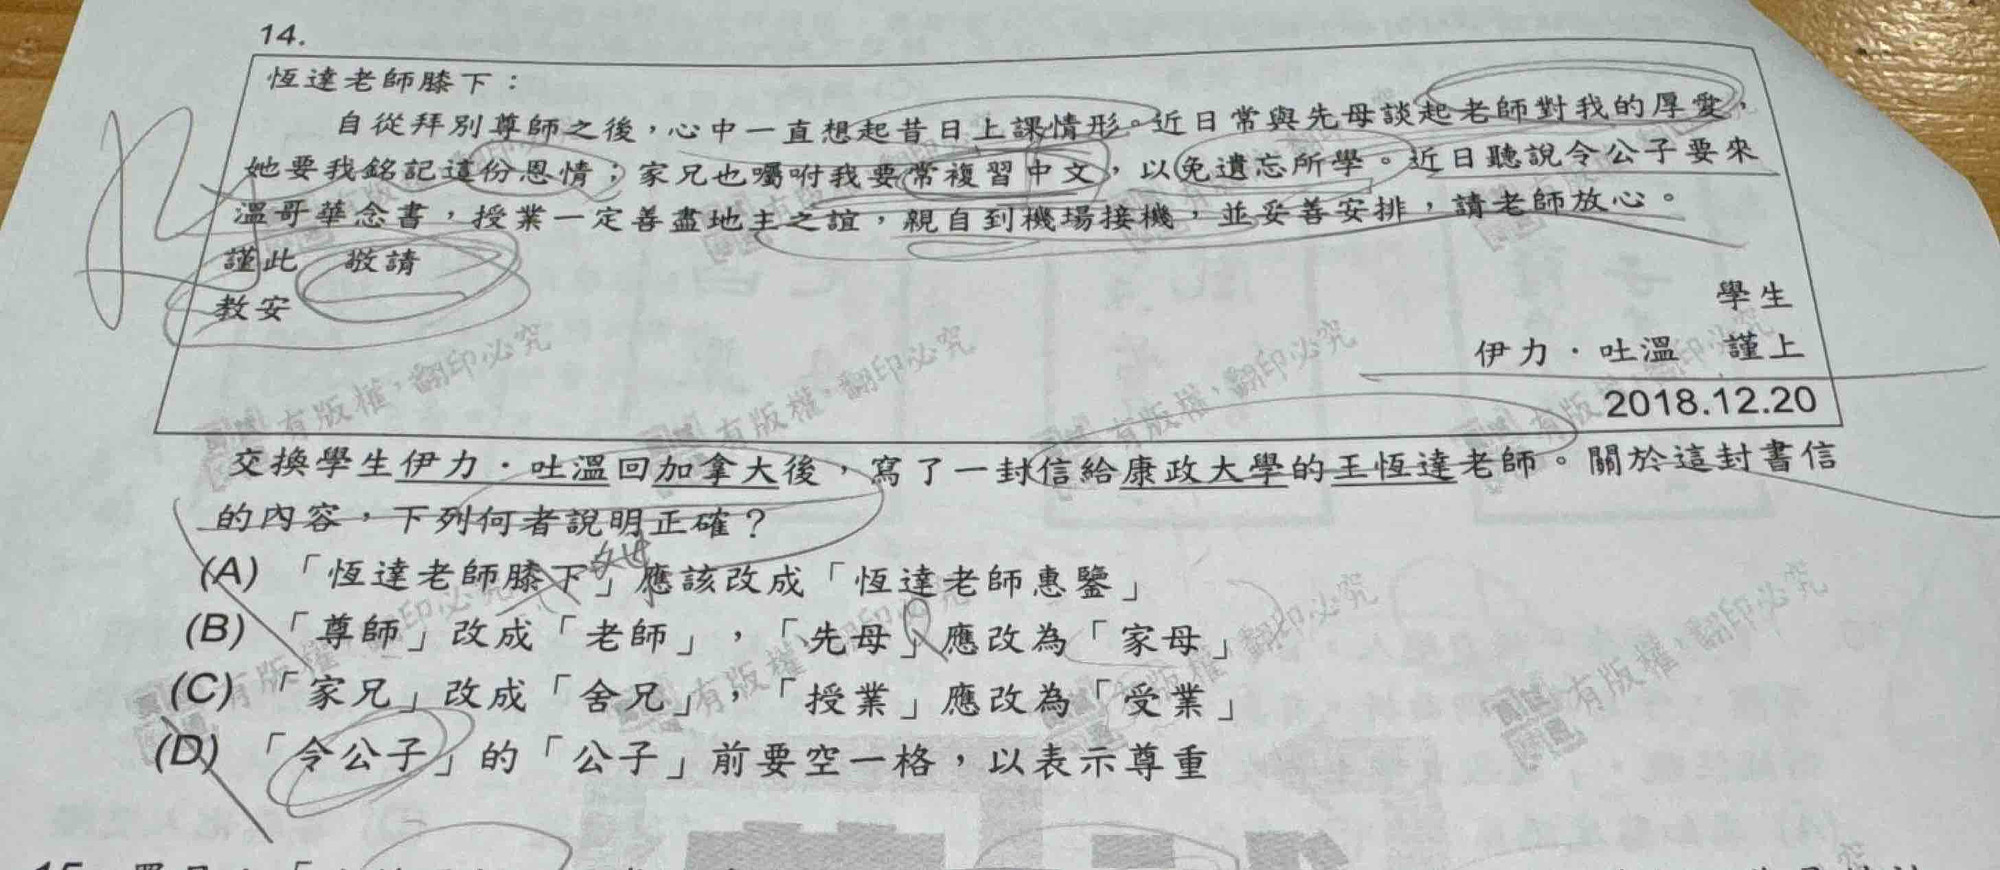 14.
恆達老師膝下：
自從拜別尊師之後，心中一直想起昔日上課情形。近日常與先母談起老師對我的厚愛，
她要我銘記這份恩情；家兄也囑咐我要常複習中文，以免遺忘所學。近日聽說令公子要來
溫哥華念書，授業一定善盡地主之誼，親自到機場接機，並妥善安排，請老師放心。
謹此　敬請
教安
學生
伊力・吐溫　謹上
2018.12.20
交換學生伊力・吐溫回加拿大後，寫了一封信給康政大學的王恆達老師。關於這封書信
的內容，下列何者說明正確？
(A) 「恆達老師膝下」應該改成「恆達老師惠鑒」
(B) 「尊師」改成「老師」，「先母」應改為「家母」
(C) 「家兄」改成「舍兄」，「授業」應改為「受業」
(D) 「令公子」的「公子」前要空一格，以表示尊重
有版權，翻印必究
有版權，翻印必究
有版權，翻印必究
有版權，翻印必究
有版權，翻印必究
有版權，翻印必究